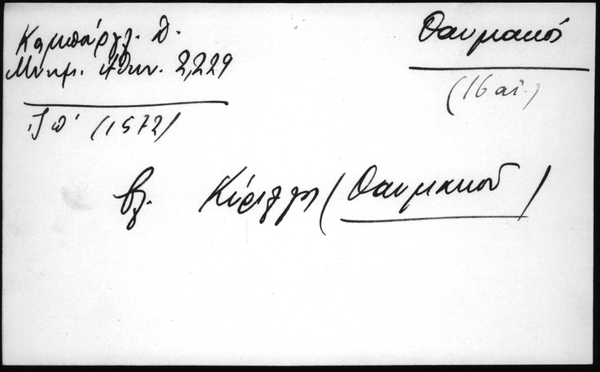 Καμπούρογλ. Δ.
Μνημ. Αθην. 2,229
(1572)
Θαυμακοῦ
(16 αἰ.)
βλ. Κύριλλος (Θαυμακοῦ)